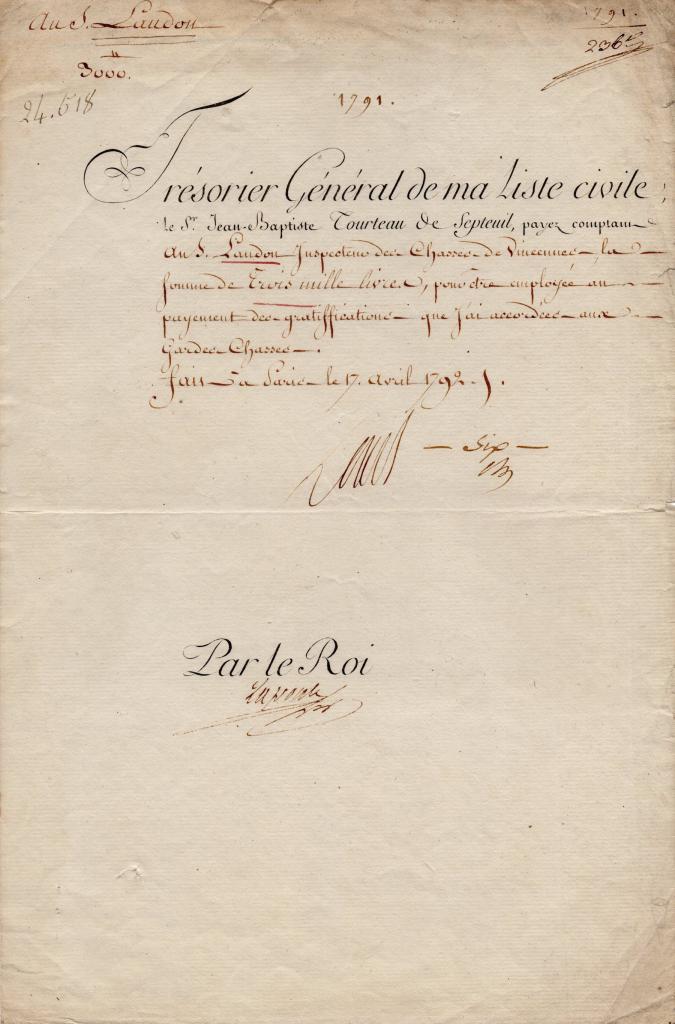 Au S. Landon
3000.
24.618
1791.
236e
1791.
Trésorier Général de ma Liste civile,
le Sr. Jean-Baptiste Tourteau de Septeuil, payez comptant
au S. Landon Inspecteur des Chasses de Vincennes, la
somme de Trois mille livres, pour être employée au
payement des gratiffications que J'ai accordées aux
Gardes Chasses.
fait à Paris le 17. avril 1792.
Louis
Six
Par le Roi
Laporte